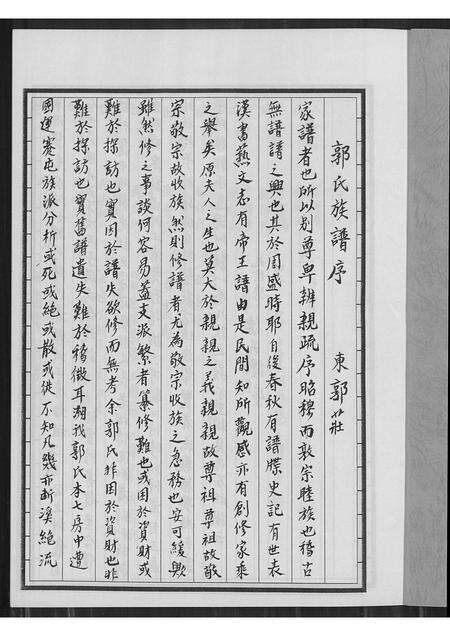 郭氏族譜序 東郭莊
家譜者也所以别尊卑辨親疏序昭穆而敦宗睦族也稽古
無譜譜之興也其於周盛時耶自後春秋有譜牒史記有世表
漢書藝文志有帝王譜由是民間知所觀感亦有創修家乘
之舉矣原夫人之生也莫大於親親之義親親故尊祖尊祖故敬
宗敬宗故收族然則修譜者尤為敬宗收族之急務也安可緩歟
雖然修之事談何容易蓋支派繁者纂修難也或困於資財或
難於採訪也實因於譜失欲修而無考余郭氏非困於資財也非
難於採訪也實舊譜遺失難於稽徵耳溯我郭氏本七房中遭
國運蹇屯族派分析或死或絕或散或徙不知凡幾亦斷溪絕流